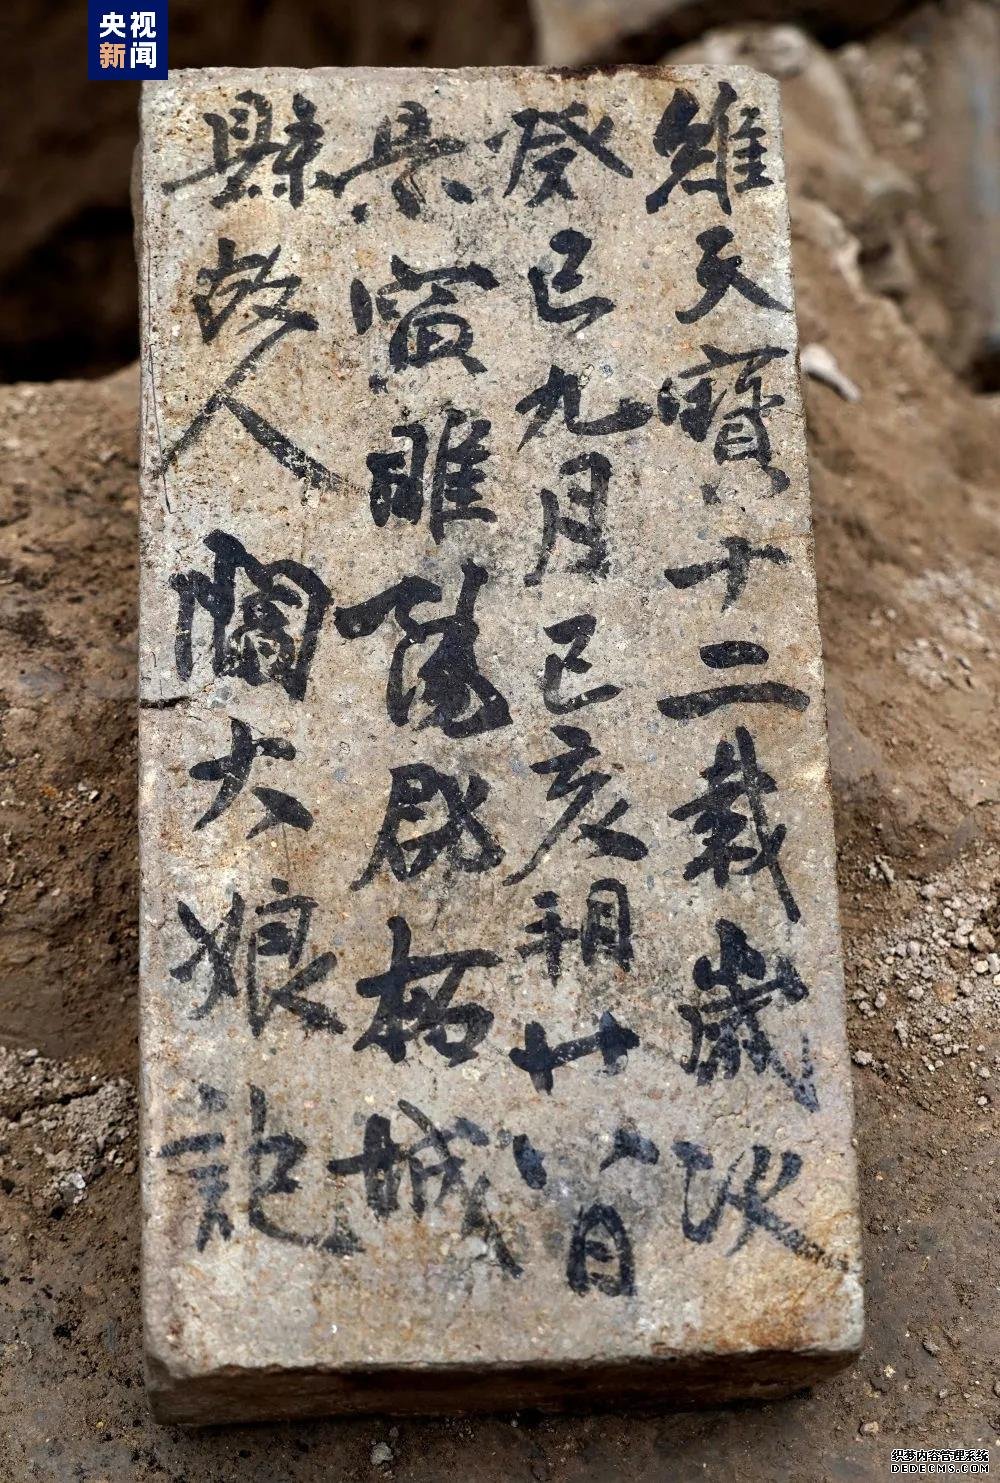 央视
新闻
維天寶十二載歲次
癸巳九月己亥朔廿八日
景寅睢陽郡柘城
縣故人大娘記
织梦内容管理系统
DEDECMS.COM